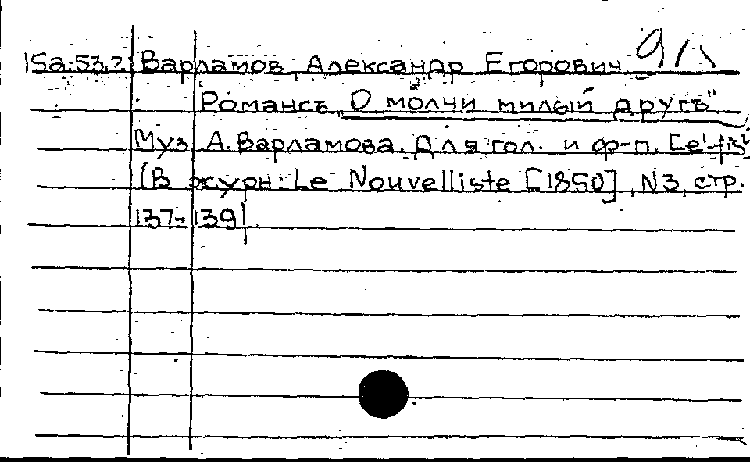 Sa.53.2 Варламов, Александр Егорович
Романсъ „О молчи милый другъ"
Муз. А. Варламова. Для гол. и ф-п.
[В журн: Le Nouvelliste [1850], N3, стр.
137-139]